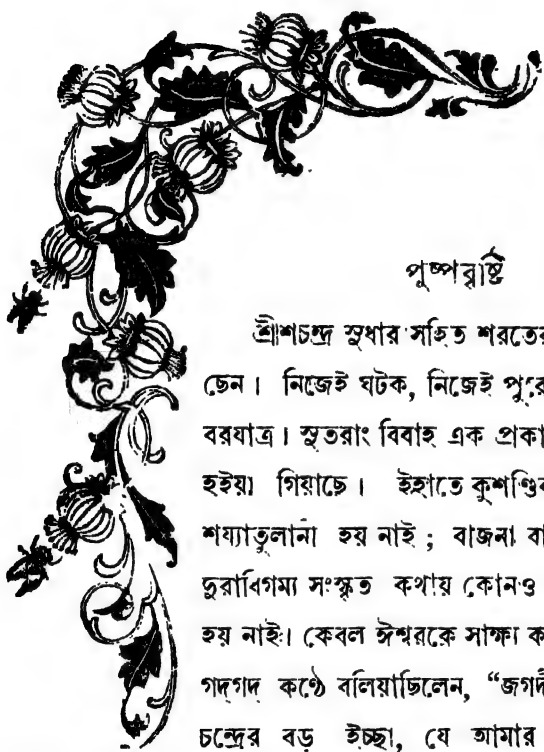 পুষ্পবৃষ্টি
শ্রীশচন্দ্র সুধার সহিত শরতের
ছেন। নিজেই ঘটক, নিজেই পুরো
বরযাত্র। সুতরাং বিবাহ এক প্রকা
হইয়া গিয়াছে। ইহাতে কুশণ্ডি
শয্যাতুলানী হয় নাই; বাজনা বা
দুরাধিগম্য সংস্কৃত কথায় কোনও
হয় নাই। কেবল ঈশ্বরকে সাক্ষ্য ক
গদ্‌গদ কণ্ঠে বলিয়াছিলেন, “জগদী
চন্দ্রের বড় ইচ্ছা, যে আমার